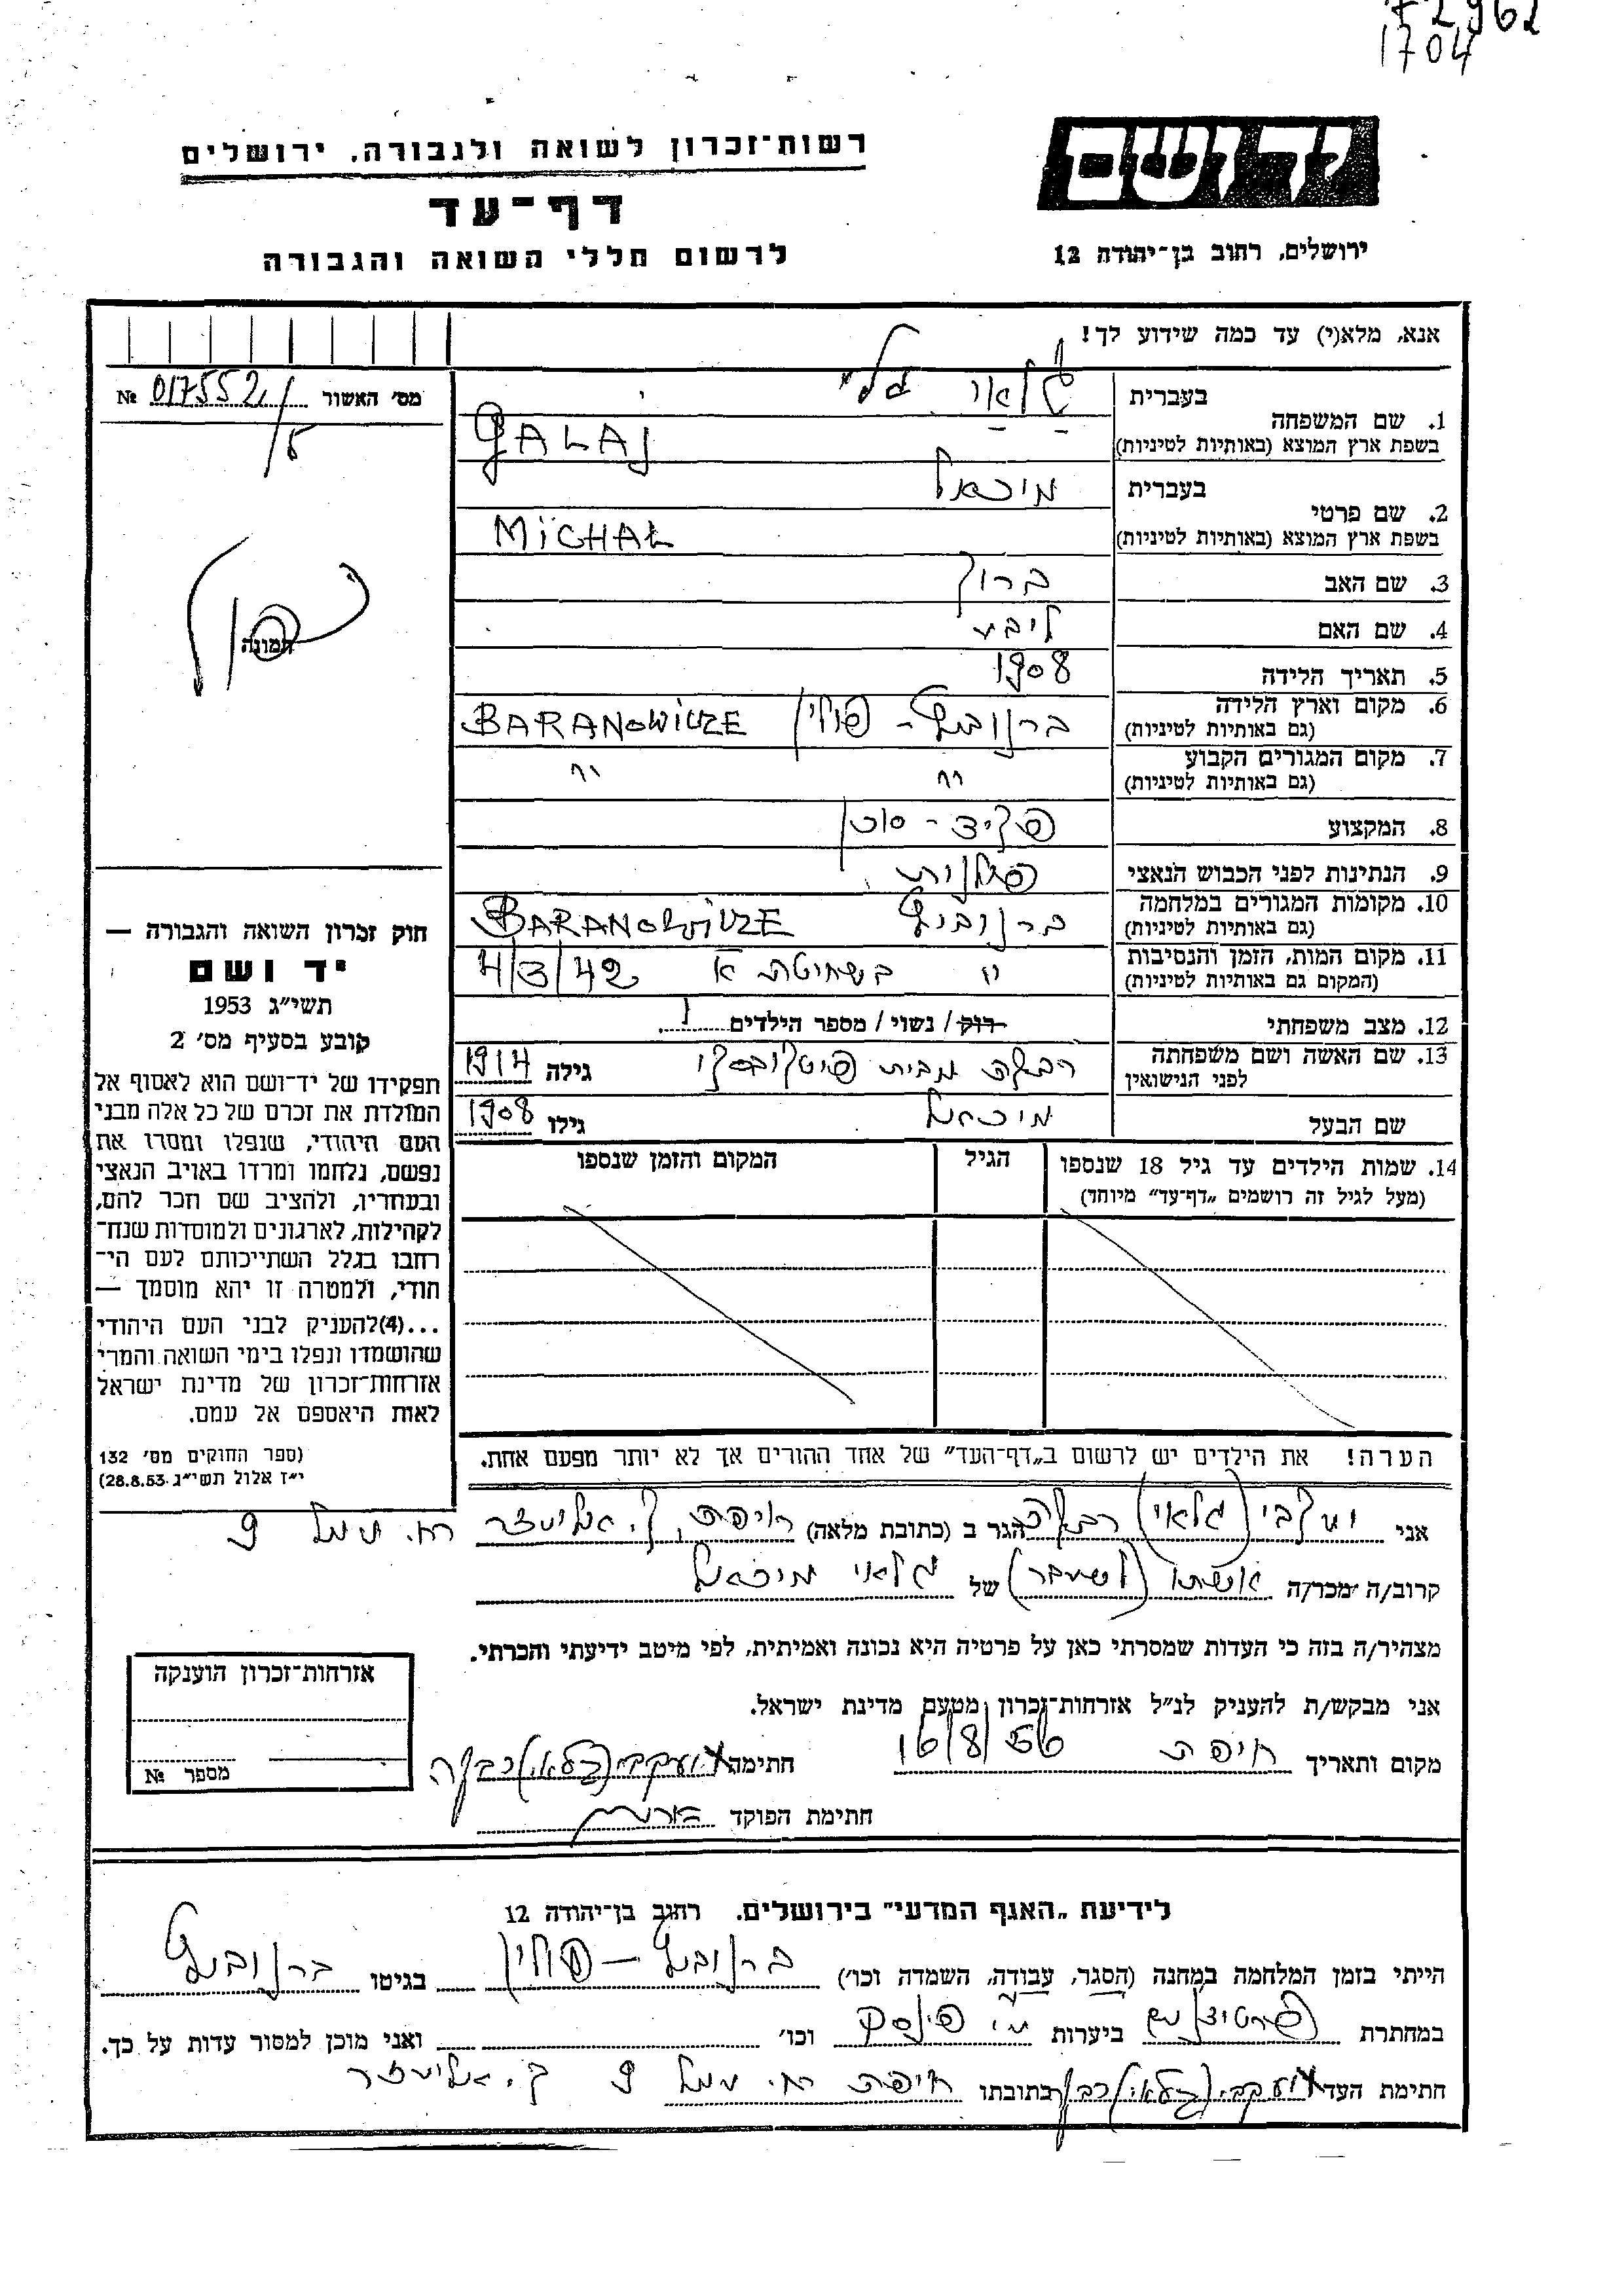 1704
יד ושם
רשות־זכרון לשואה ולגבורה, ירושלים
דף־עד
לרשום חללי השואה והגבורה
ירושלים, רחוב בן־יהודה 12
אנא, מלא(י) עד כמה שידוע לך!
מס׳ האשור № 017552
בעברית
1. שם המשפחה
בשפת ארץ המוצא (באותיות לטיניות) GALAJ
בעברית מיכאל
2. שם פרטי
בשפת ארץ המוצא (באותיות לטיניות) MiCHAŁ
3. שם האב ברוך
4. שם האם ליבה
5. תאריך הלידה 1908
6. מקום וארץ הלידה ברנוביץ - פולין BARANOWICZE
(גם באותיות לטיניות)
7. מקום המגורים הקבוע " "
(גם באותיות לטיניות)
8. המקצוע פקיד - סוכן
9. הנתינות לפני הכבוש הנאצי פולנית
10. מקומות המגורים במלחמה ברנוביץ BARANOWICZE
(גם באותיות לטיניות)
11. מקום המות, הזמן והנסיבות " בשחיטה א 4/3/42
(המקום גם באותיות לטיניות)
12. מצב משפחתי רוק / נשוי / מספר הילדים 1
13. שם האשה ושם משפחתה רבקה מבית גילה 1914
לפני הנישואין
שם הבעל מיכאל גילו 1908
14. שמות הילדים עד גיל 18 שנספו הגיל המקום והזמן שנספו
(מעל לגיל זה רושמים „דף־עד״ מיוחד)
הערה! את הילדים יש לרשום ב„דף־העד״ של אחד ההורים אך לא יותר מפעם אחת.
התמונה
חוק זכרון השואה והגבורה —
יד ושם
תשי״ג 1953
קובע בסעיף מס׳ 2
תפקידו של יד־ושם הוא לאסוף אל
המולדת את זכרם של כל אלה מבני
העם היהודי, שנפלו ומסרו את
נפשם, נלחמו ומרדו באויב הנאצי
ובעוזריו, ולהציב שם וזכר להם,
לקהילות, לארגונים ולמוסדות שנח־
רבו בגלל השתייכותם לעם הי־
הודי, ולמטרה זו יהא מוסמך —
...(4)להעניק לבני העם היהודי
שהושמדו ונפלו בימי השואה והמרי
אזרחות־זכרון של מדינת ישראל
לאות היאספם אל עמם.
(ספר החוקים מס׳ 132
י״ז אלול תשי״ג 28.8.53)
אני (גלאי) רבקה הגר ב (כתובת מלאה) חיפה, ק. אליעזר רח. 9
קרוב/ה מכר/ה אשתו (לשעבר) של גלאי מיכאל
מצהיר/ה בזה כי העדות שמסרתי כאן על פרטיה היא נכונה ואמיתית, לפי מיטב ידיעתי והכרתי.
אני מבקש/ת להעניק לנ״ל אזרחות־זכרון מטעם מדינת ישראל.
מקום ותאריך חיפה 16/8/56 חתימה
חתימת הפוקד
אזרחות־זכרון הוענקה
מספר №
לידיעת „האגף המדעי״ בירושלים, רחוב בן־יהודה 12
הייתי בזמן המלחמה במחנה (הסגר, עבודה, השמדה וכו׳) ברנוביץ — פולין בגיטו ברנוביץ
במחתרת ביערות פינסק וכו׳ ואני מוכן למסור עדות על כך.
חתימת העד כתובתו חיפה רח. 9 ק. אליעזר